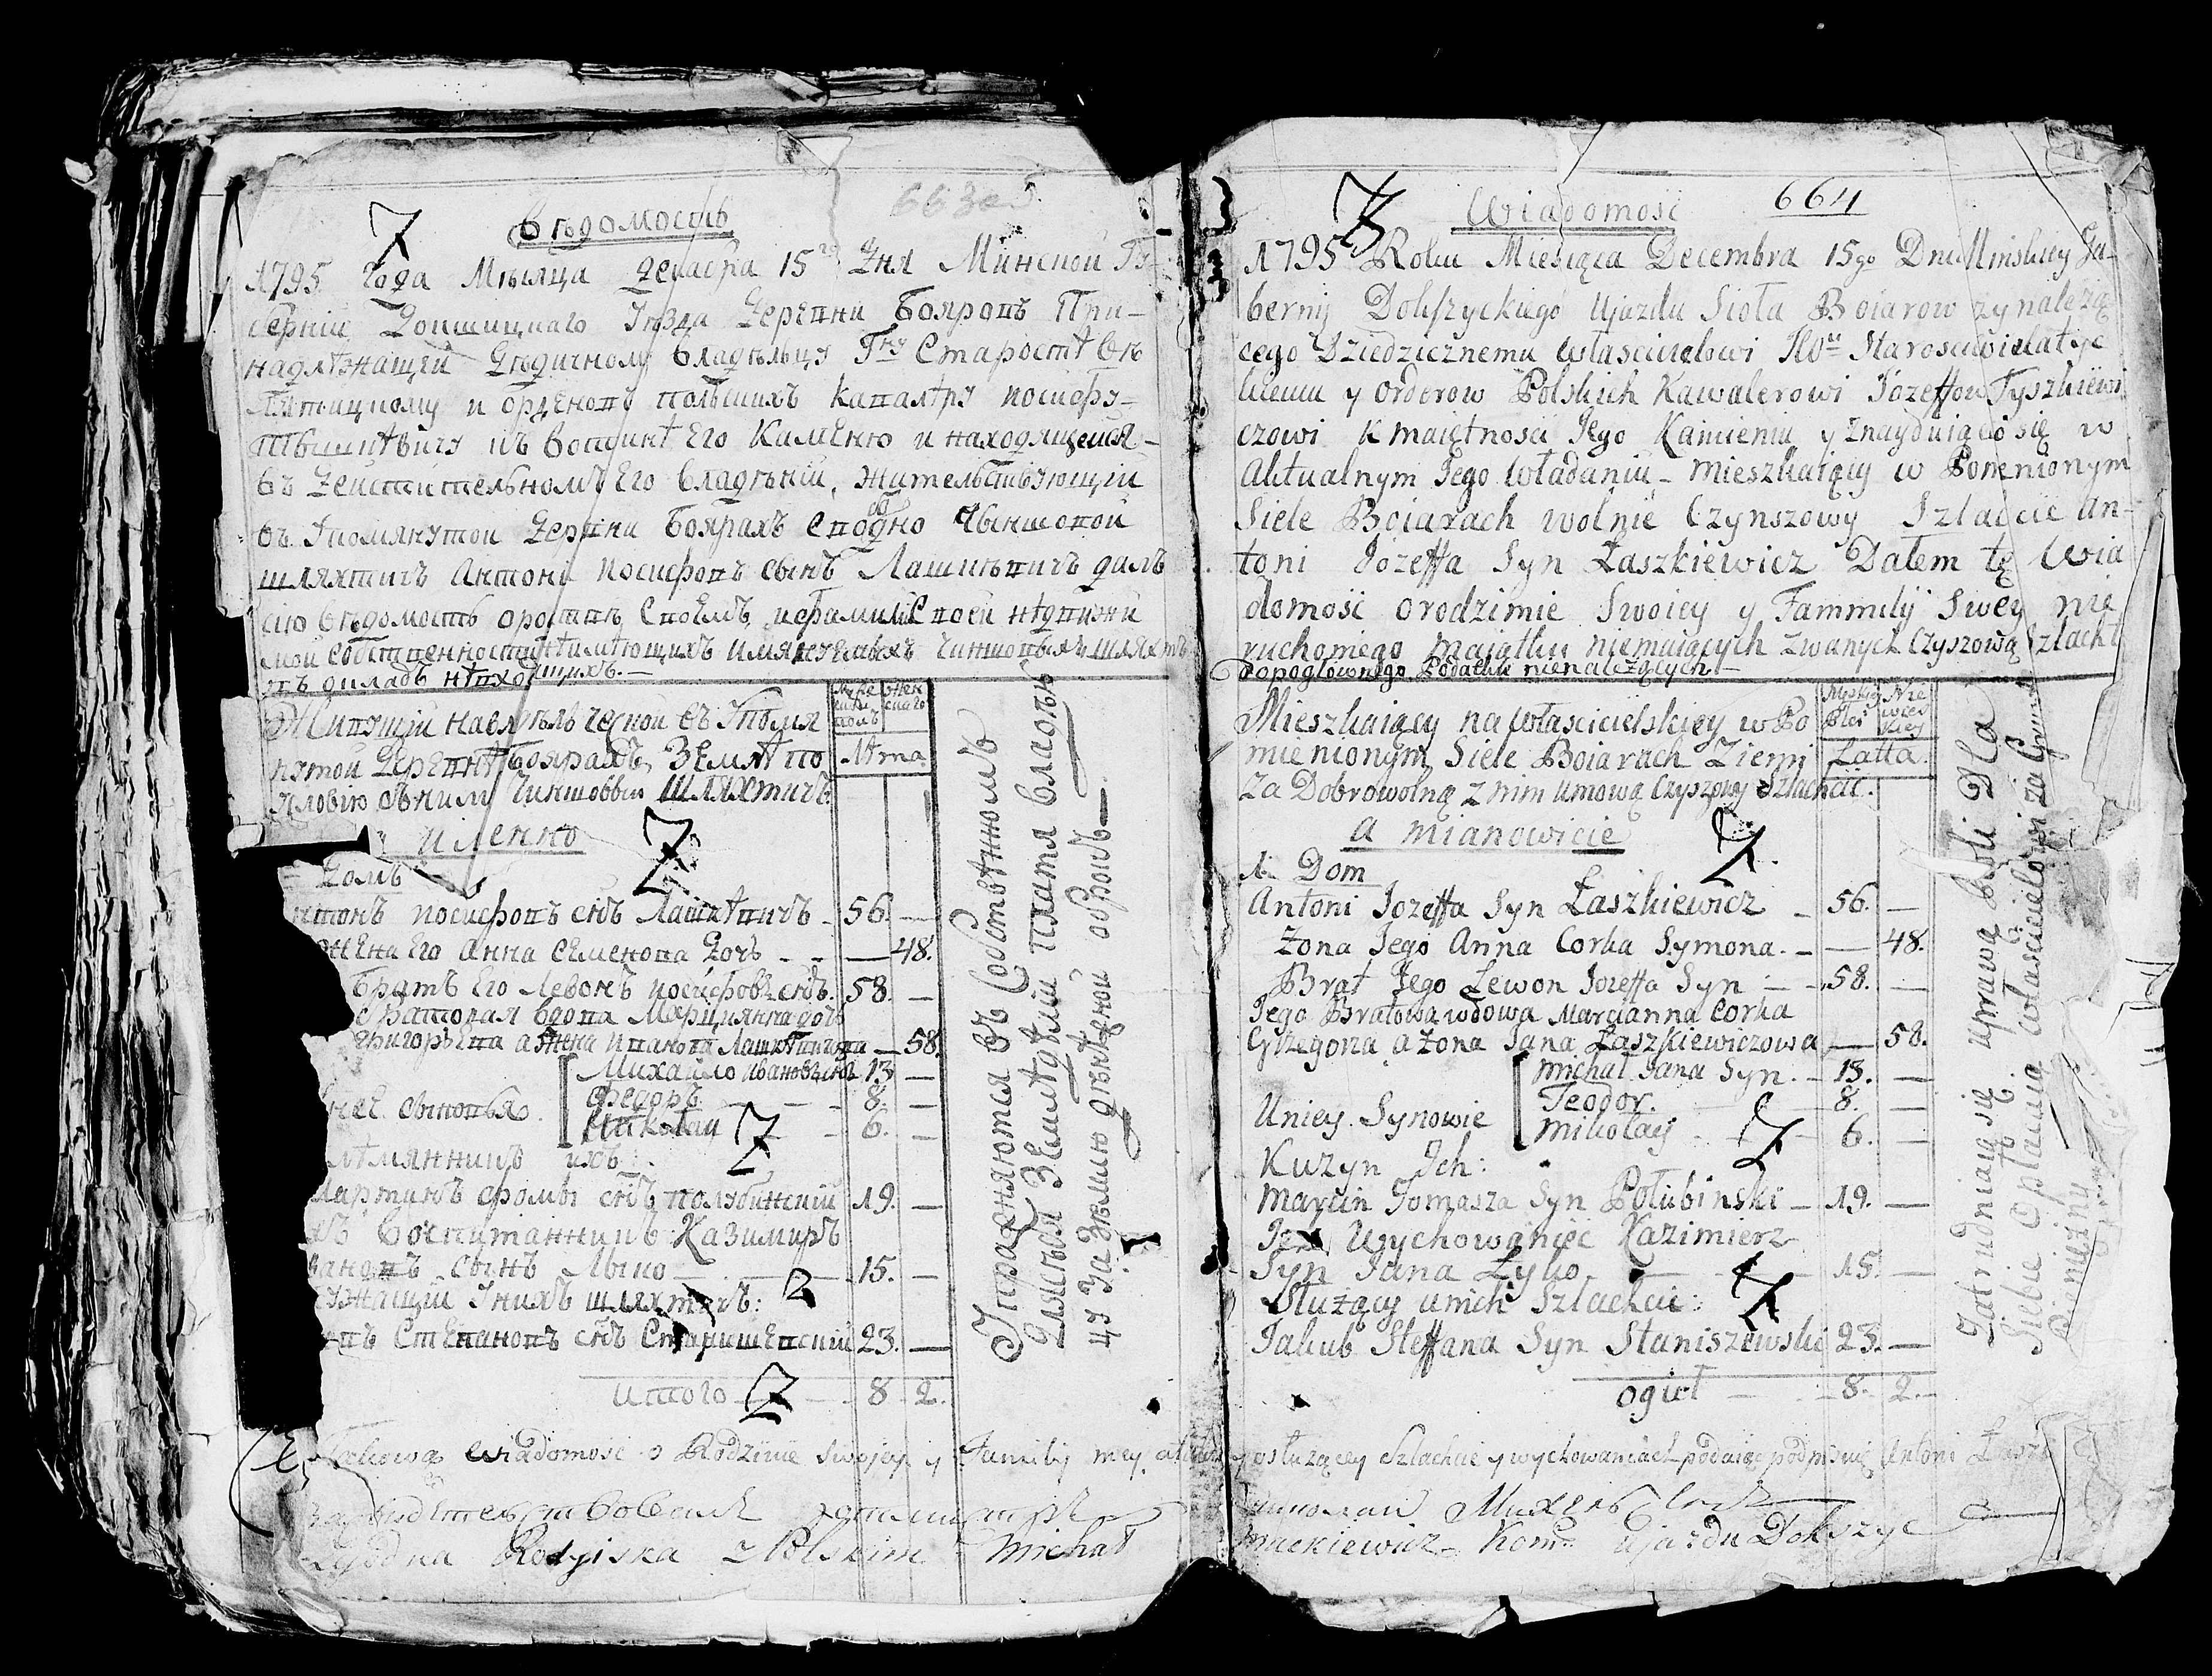 663 об.
7
Вѣдомость
1795 года Мѣсяца декабра 15го Дня Минской Гу-
берніи Докшицкаго Уѣзда Деревни Бояровъ При-
надлѣжащей Дѣдичному Владѣльцу Гну Старостѣ
и орденовъ польскихъ кавалѣру иосифу
Тышкѣвичу къ вотчинѣ Его Каменю и находящейся
въ Действительномъ Его Владѣніи, жительствующіи
въ Упомянутой Деревни Боярахъ свободно Чыншовой
шляхтичъ Антони иосифовъ сынъ Лашкѣвичъ далъ
сію вѣдомость о своемъ и фамиліи своей нѣдвижи
мой собственности нѣимѣющихъ имянуемыхъ чиншовыхъ шляхтъ
въ окладъ нѣвходящихъ.—
Живущій на владѣльческой въ Упомя
нутой Деревнѣ Боярахъ Землѣ по
Условію съ нимъ Чиншовыи Шляхтичъ
имѣнно 7
Домъ
иосифовъ снъ Лашкѣвичъ - 56. —
жена Его Анна Семенова Дочь - - — 48.
Братъ Его Левонъ иосифовъ снъ. 58. —
Братовая вдова Марціянна дочь
Григорьева а жена Иванова Лашкѣвичова — 58.
Михайло Ивановъ снъ 13 —
сыновья Федоръ — 8. —
Николай 7 - 6. —
лѣмянникъ ихъ
Мартинъ Фомы снъ полубинскій 19. —
Воспитанникъ Казимиръ
сынъ Лыко — 15. —
Унихъ шляхтичъ:
Степановъ снъ Станишевскій 23. —
Итого 7 — 8 2.
Мужескій полъ Женскаго
Лѣта
Упражняются въ Собственномъ
Для себя Земледѣліи платя владѣль
цу За Зѣмлю дѣнѣжной оброкъ—
664
7
Wiadomosć
1795 Roku Miesiąca Decembra 15go Dnia Minskiey Gu-
bernij Dokszyckiego Ujazdu Sioła Boiarow zynależą
cego Dziedzicznemu właścicielowi
y Orderow Polskich Kawalerowi Jozeffowi Tyszkiewi
czowi k maiętnosci Jego Kamieniu y znayduiącosię w
Aktualnym Jego Władaniu - mieszkaiący w Pomenionym
Siele Boiarach wolnie Czynszowy Szlachcic An-
toni Jozeffa Syn Łaszkiewicz Dałem tę Wia
domość orodzinie Swoiey y Fammilij Swey nie
ruchomego maiątku niemaiących zwanych Czyszową Szlachtą
dopogłownego Podatku nienależących —
Mieszkaiący na Włascicielskiey w Po
mienionym Siele Boiarach Ziemi
za Dobrowolną z nim umową Czyszowy Szlachcic.
a mianowicie 7
1. Dom
Antoni Jozeffa Syn Łaszkiewicz - 56. —
Żona Jego Anna Corka Symona. - — 48.
Brat Jego Lewon Jozeffa Syn — 58. —
Jego Bratowa wdowa Marcianna Corka
Grzegorza a żona Jana Łaszkiewiczowa — 58.
Michał Jana Syn. - 13. —
Uniey Synowie Teodor. 8. —
Mikołay 7 - 6. —
Kuzyn Ich:
Marcin Tomasza Syn Połubinski - 19. —
Wychowaniec Kazimierz
Syn Jana Łyko — 15. —
Służący unich Szlachcic: 7
Jakub Steffana Syn Staniszewski 23. —
ogiół — 8. 2.
Łatta.
Zatrudniaią się uprawą Roli Dla
Siebie Opłacaią własciecielowi za Grunt
Pieniężny
Takową Wiadomość o Rodzinie Swojey y Familij mey y osłużącey Szlachcie y wychowańcach podaiąc podpisuię Antoni Łaszk
Свидѣтельствовалъ
Zgodna Rossyiska z Polskim Michał Mackiewicz Kom: Ujazdu Dokszyc